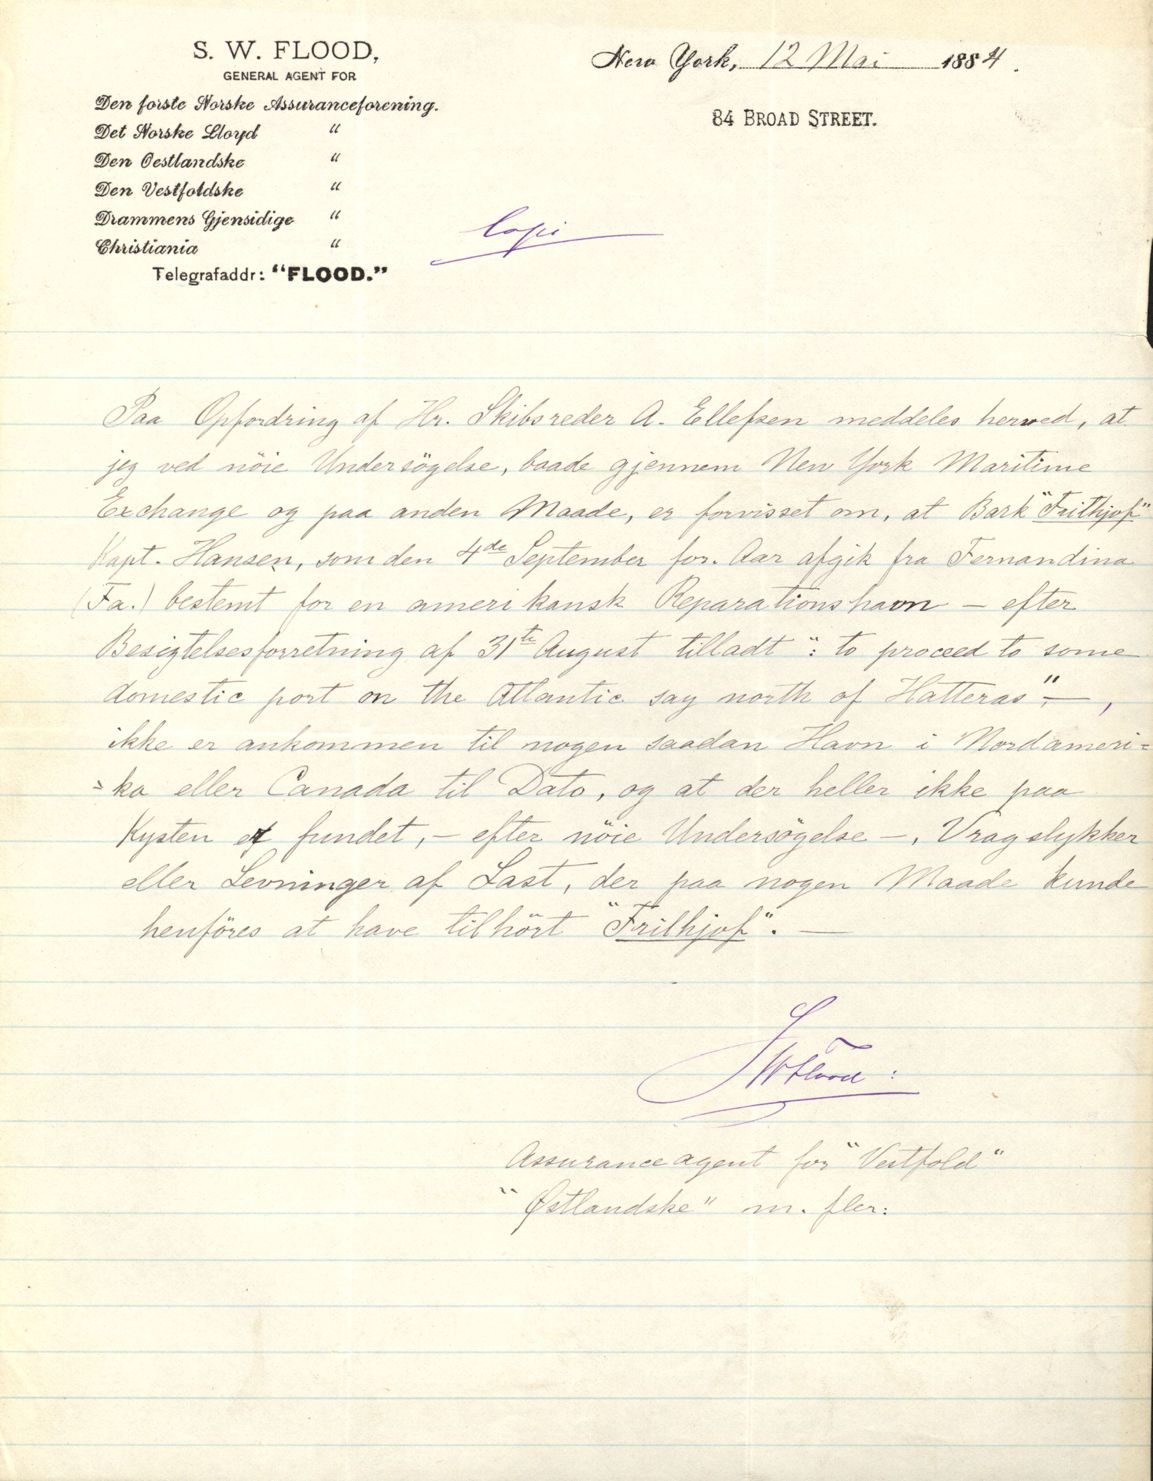 S. W. FLOOD,
GENERAL AGENT FOR
Den forste Norske Assuranceforening.
Det Norske Lloyd "
Den Oestlandske "
Den Vestfoldske "
Drammens Gjensidige "
Christiania "
Telegrafaddr: "FLOOD."
New York, 12 Mai 1884.
84 BROAD STREET.
Copi
Paa Opfordring af Hr. Skibsreder A. Ellefsen meddeles herved, at
jeg ved nöie Undersögelse, baade gjennem New York Maritime
Exchange og paa anden Maade, er forvisset om, at Bark "Frithjof"
Kapt. Hansen, som den 4de September for. Aar afgik fra Fernandina
(Fa.) bestemt for en amerikansk Reparationshavn – efter
Besigtelsesforretning af 31te August tilladt ": to proceed to some
domestic port on the Atlantic say north of Hatteras" –,
ikke er ankommen til nogen saadan Havn i Nordameri=
=ka eller Canada til Dato, og at der heller ikke paa
Kysten er fundet, – efter nöie Undersögelse –, Vragstykker
eller Levninger af Last, der paa nogen Maade kunde
henföres at have tilhört "Frithjof". —
SWFlood:
Assuranceagent for "Vestfold"
"Østlandske" m. fler: